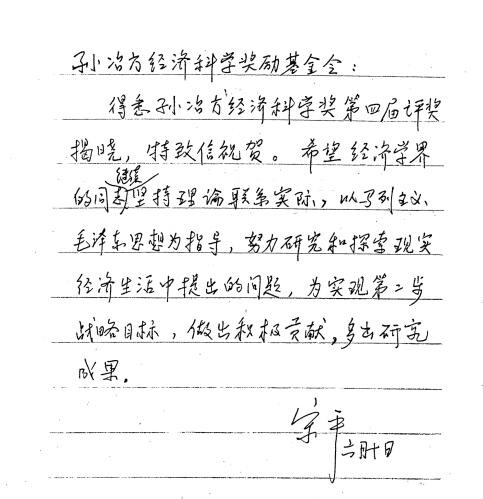 孙冶方经济科学奖励基金会：
得悉孙冶方经济科学奖第四届评奖
揭晓，特致信祝贺。希望经济学界
继续
的同志坚持理论联系实际，以马列主义、
毛泽东思想为指导，努力研究和探索现实
经济生活中提出的问题，为实现第二步
战略目标，做出积极贡献，多出研究
成果。
宋平
六月十日